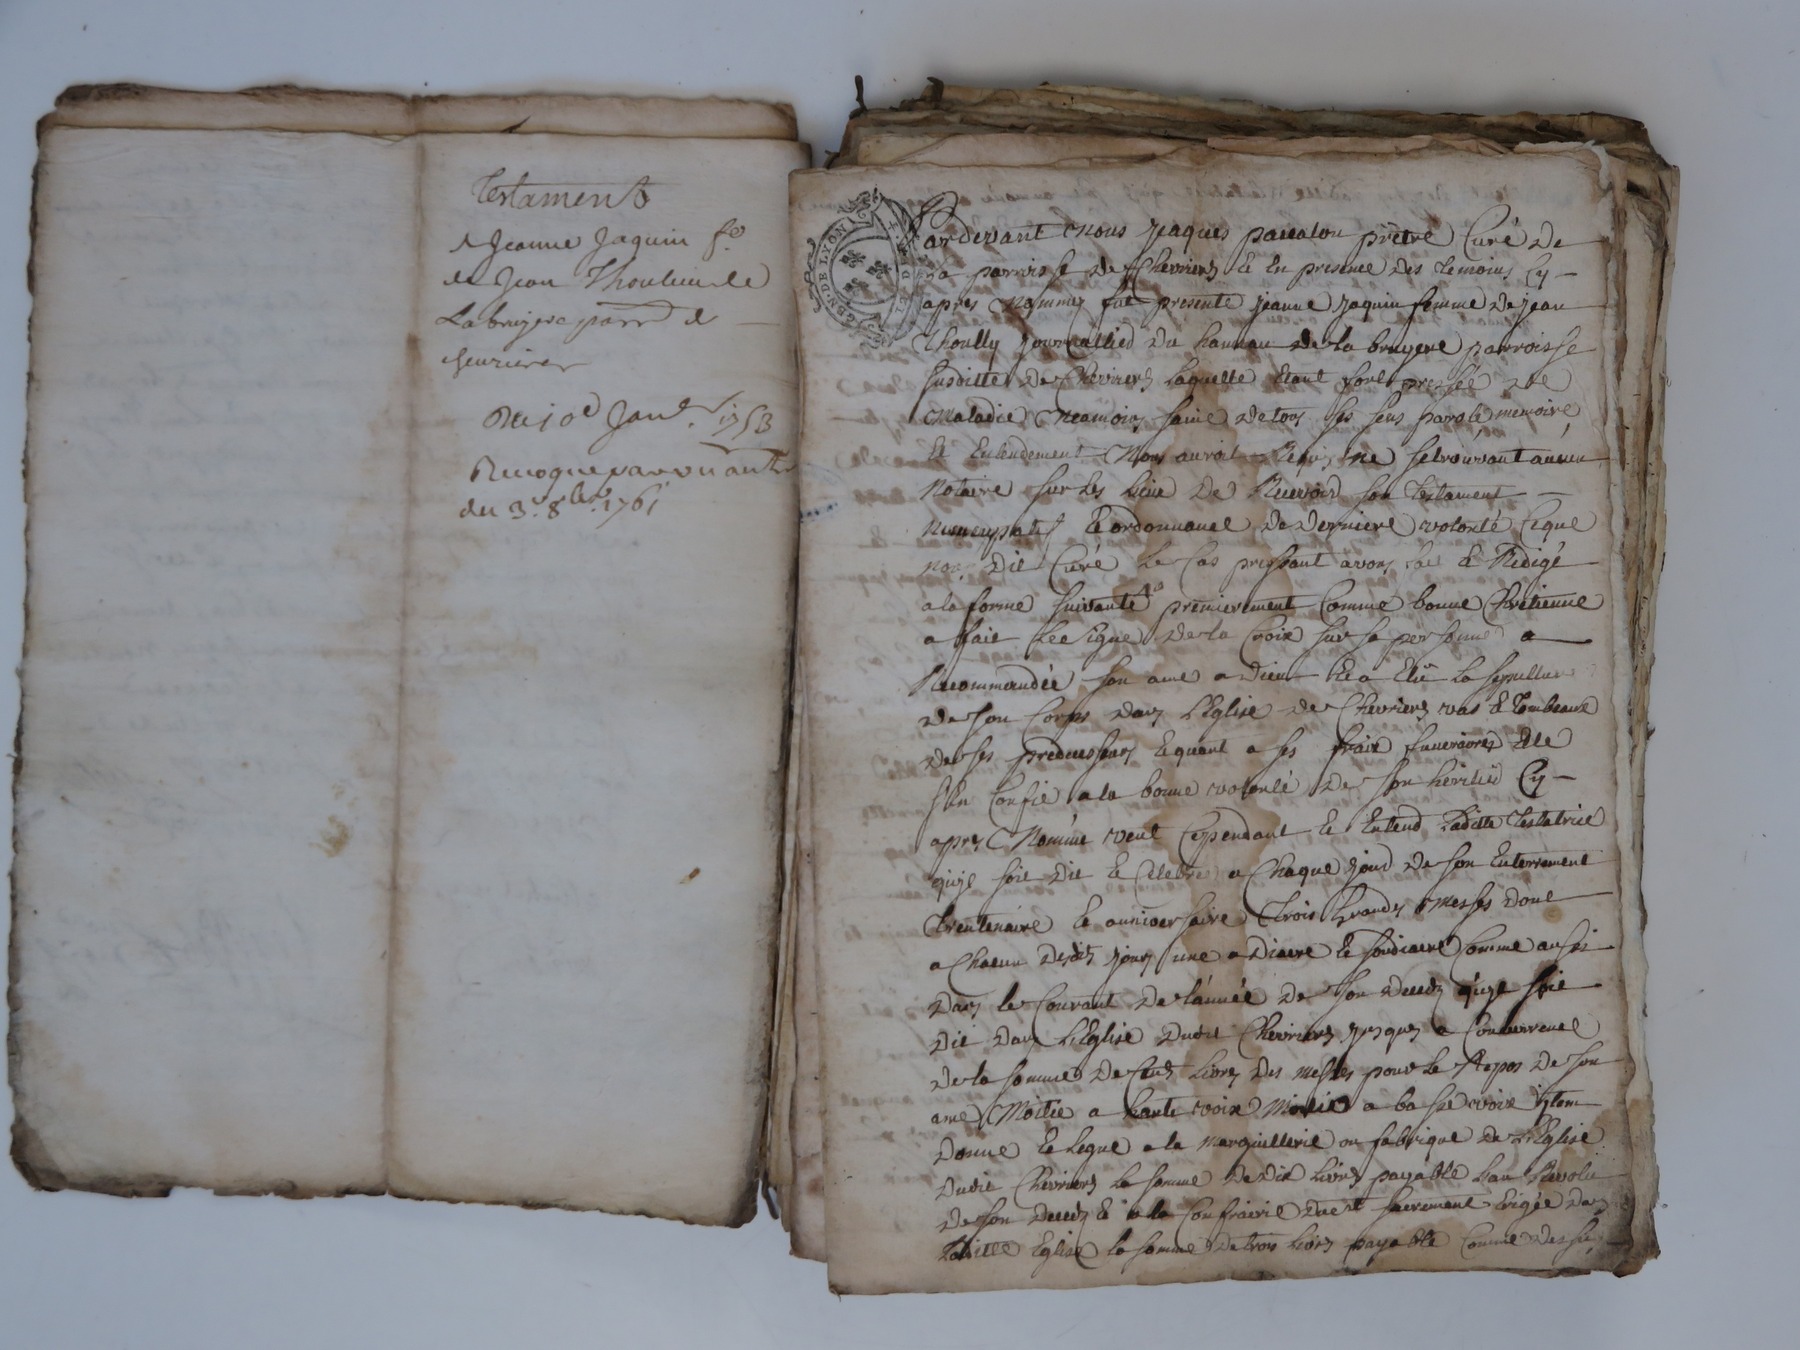 Testament
de Jeanne Jaquin fe
de Jean Thoulieu de
Labruyere parr de
chevrieres
Du 10e Janv. 1753
Revoqué par un autre
du 3. 8bre. 1761
GEN. DE LYON
Pardevant Nous jaques pauaton prêtre Curé de
la parroisse de Chevrieres Et En presence des temoins Cy
apres Nommez fut presente jeanne jaquin femme de jean
thoully journallied du hameau de la bruyere parroisse
susditte de Chevrieres Laquelle Etant fort pressée de
maladie Neamoins saine de tous ses sens parole memoire
Et Entendement Nous auroit requis ne se trouvant aucun
Notaire sur les lieux de Recevoir son testament
Nuncupatif Et ordonnance de derniere volonté Ce que
nous dit Curé le Cas pressant avons fait Et Redigé
a la forme suivante premierement Comme bonne Chretienne
a fait Le signe de la Croix sur sa personne a
Recommandée son ame a Dieu Et a Elû la sepulture
de son Corps dans L'Eglise de Chevrieres vas Et tombeaux
de ses predecesseurs Et quant a ses frais funeraires Elle
s'En Confie a la bonne volonté de son heritier Cy
apres Nommé veut Cependant Et Entend Laditte testatrice
qu'il soit dit Et Celebré a Chaque jour de son Enterrement
trentenaire Et anniversaire trois Grandes messes dont
a Chacun desdits jours une a Diacre Et soudiacre Comme aussi
dans le Courant de l'année de son decedz qu'il soit
dit dans L'Eglise dudit Chevrieres jusques a Concurrence
de la somme de Cent Livres des messes pour Le Repos de son
ame Moitié a haute voix Moitié a basse voix jtem
donne Et Legue a la marguillerie ou fabrique de L'Eglise
dudit Chevrieres la somme de dix livres payable L'an Revolu
de son decedz Et a la Confrairie du st sacrement Erigée dans
Laditte Eglise la somme de trois Livres payable Comme dessus